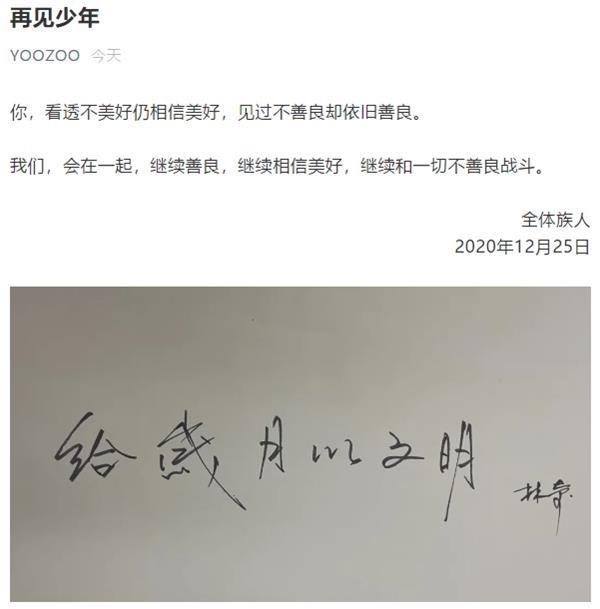 再见少年
YOOZOO 今天
你，看透不美好仍相信美好，见过不善良却依旧善良。
我们，会在一起，继续善良，继续相信美好，继续和一切不善良战斗。
全体族人
2020年12月25日
给岁月以文明
林奇